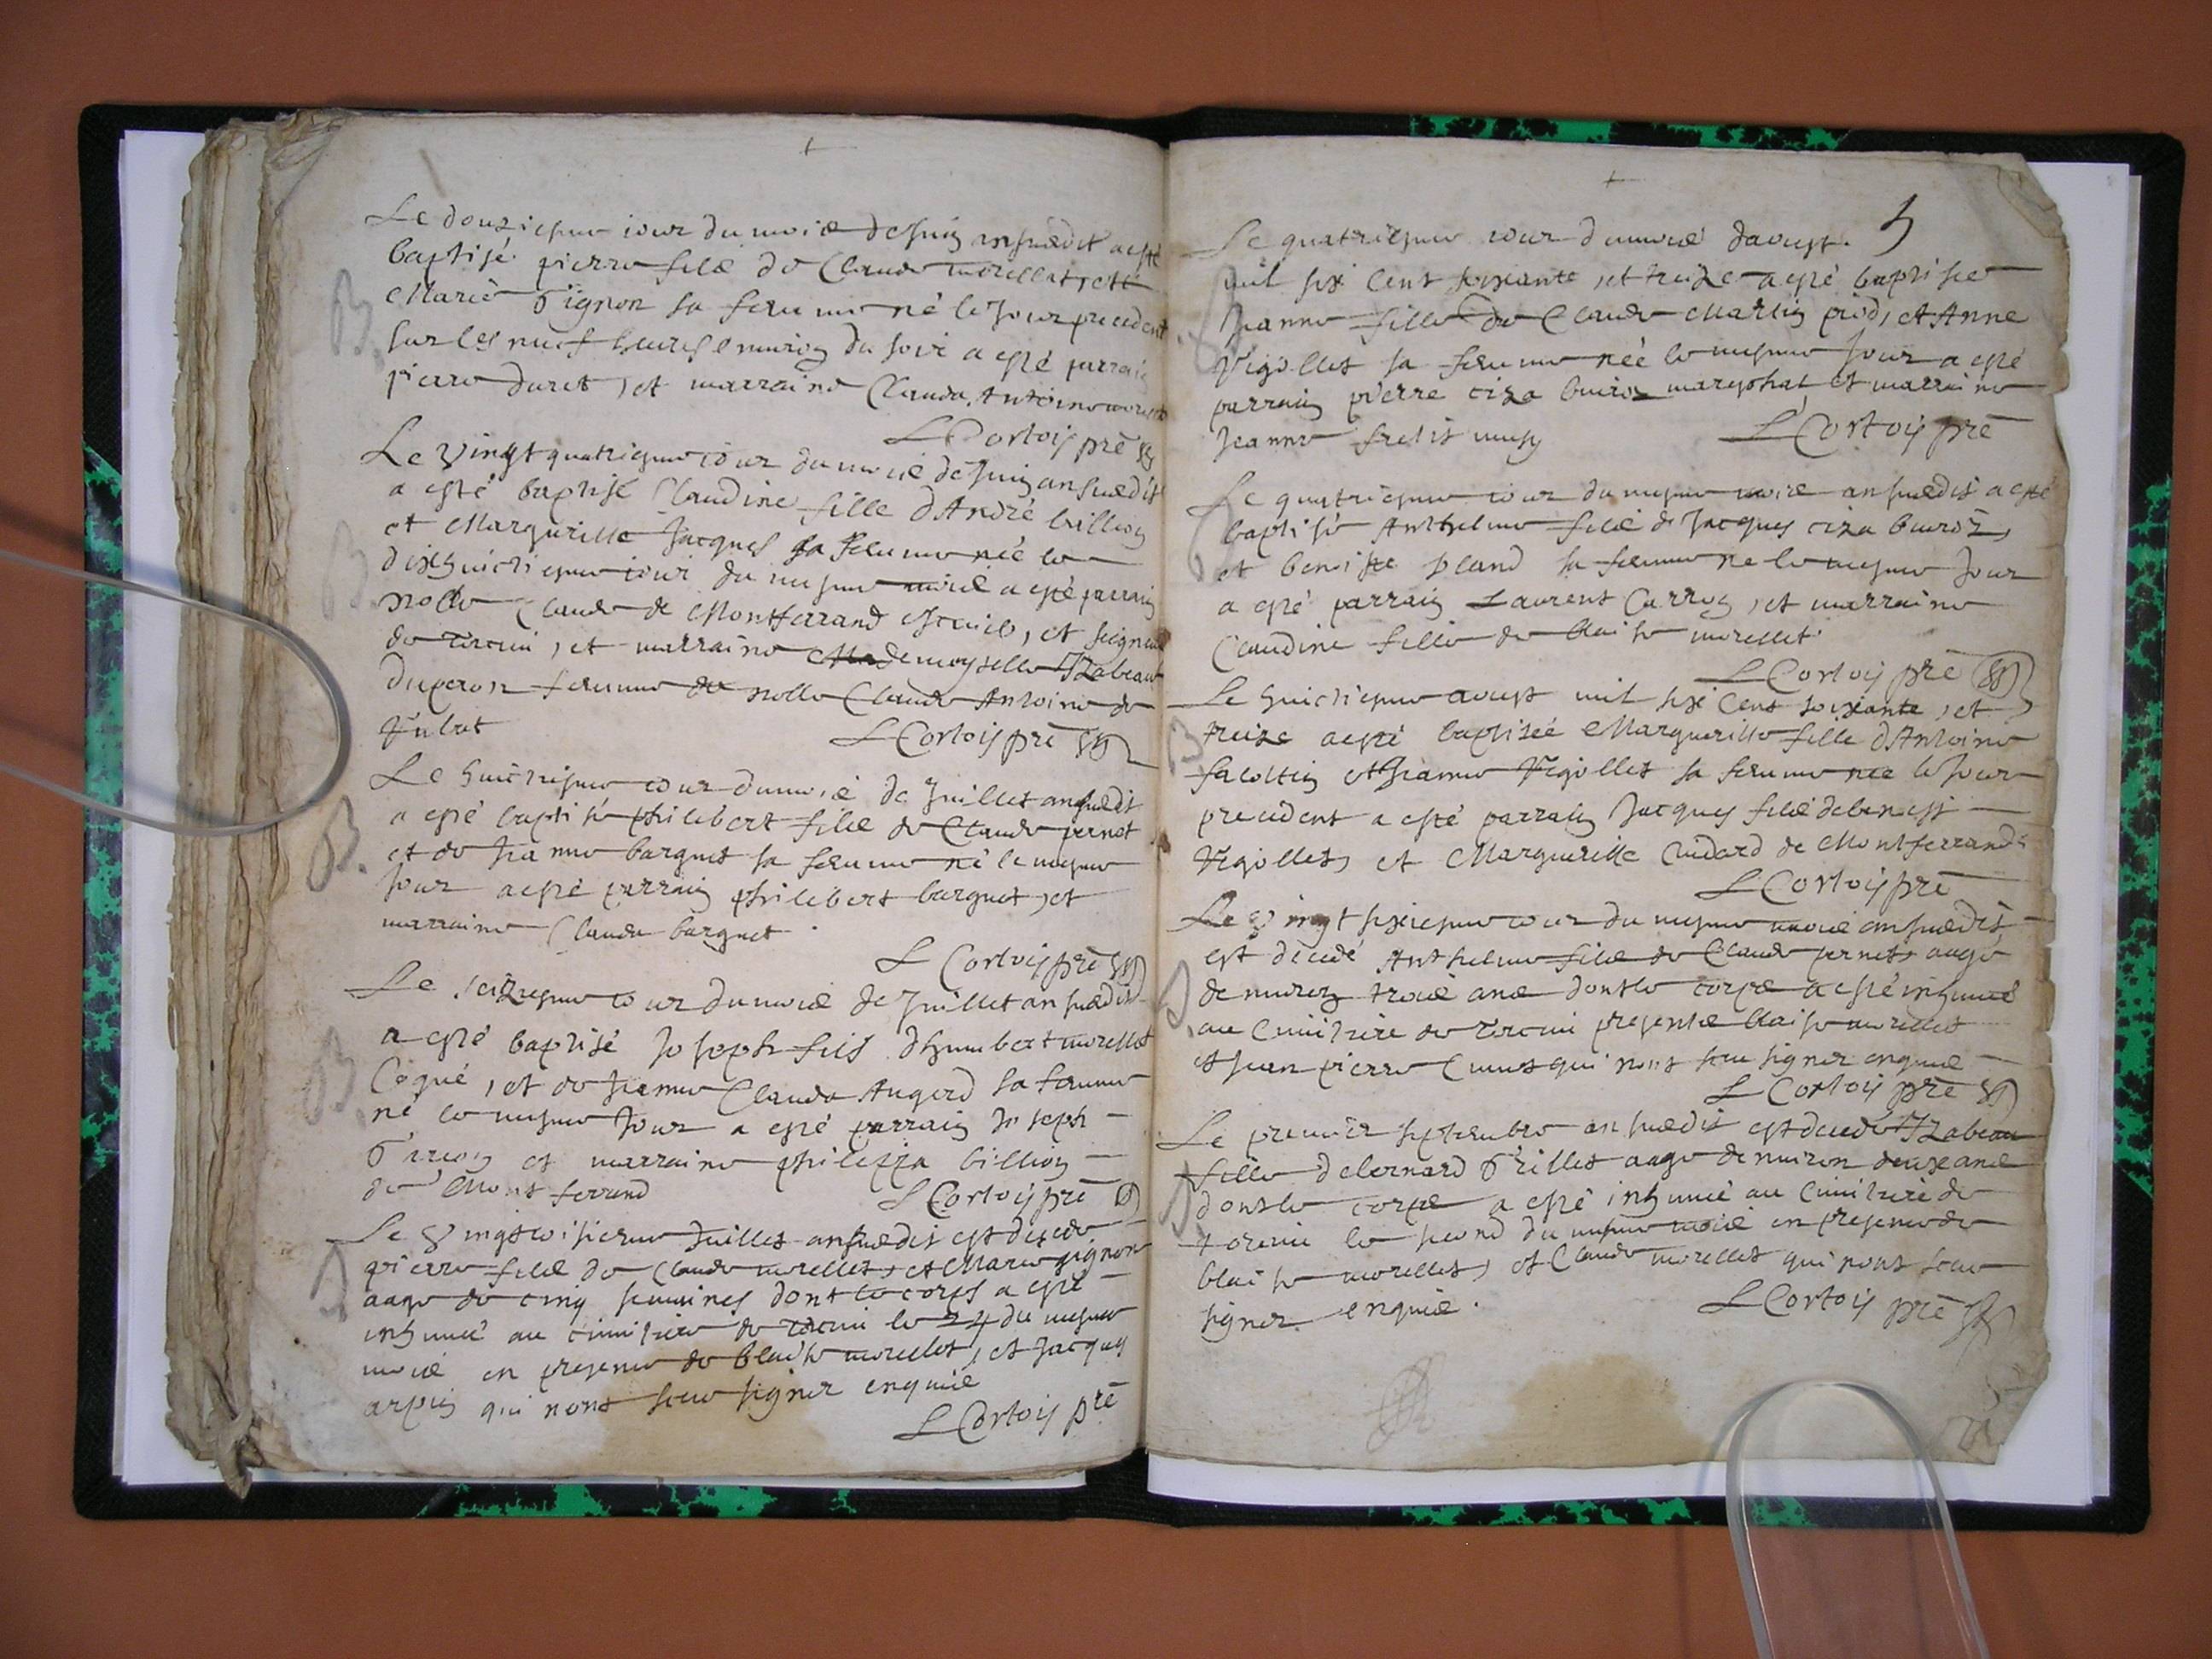 Le douziesme iour du mois de Juin an susdit a esté
baptisé pierre fils de Claude morellet, et
Marie Pignon sa femme né le Jour precedent
sur les neuf heures environ du soir a esté parrain
pierre duret, et marraine Clauda Antoine
L Cortois pre
Le vingt quatriesme iour du mois de Juin an susdit
a esté baptisé Claudine fille d'André billion
et Margueritte Jacques sa femme née le
dixhuictiesme iour du mesme mois a esté parrain
noble Claude de Montferrand escuier, et seigneur
de torcin, et marraine Mademoyselle Izabeau
duperon femme de noble Claude Antoine de
L Cortois pre
Le huictiesme iour du mois de Juillet an susdit
a esté baptisé philibert fils de Claude pernet
et de Jeanne barquet sa femme né le mesme
Jour a esté parrain philibert barquet, et
marraine Clauda barquet.
L Cortois pre
Le seiziesme iour du mois de Juillet an susdit
a esté baptisé Joseph fils d'humbert morellet
Coqué, et de Jeanne Clauda Augerd sa femme
né le mesme Jour a esté parrain Joseph
et marraine philippa billion
de Montferrand L Cortois pre
Le vingtroisiesme Juillet an susdit est decedé
pierre fils de Claude morellet, et Marie pignon
aagé de cinq semaines dont le corps a esté
inhumé au cimitiere de torcin le 24 du mesme
mois en presence de blaise morellet, et Jacques
arpin qui n'ont sceu signer enquis
L Cortois pre
5
Le quatriesme iour du mois d'aoust
mil six Cent soixante, et treize a esté baptisée
Jeanne fille de Claude Martin piod, et Anne
Vigollet sa femme née le mesme Jour a esté
parrain pierre ciza buiron mareschal et marraine
Jeanne
L Cortois pre
Le quatriesme iour du mesme mois an susdit a esté
baptisé Anthelme fils de Jacques ciza buiron,
et benoiste pland sa femme né le mesme Jour
a esté parrain Laurent Carron, et marraine
Claudine fille de blaise morellet
L Cortois pre
Le huictiesme aoust mil six Cent soixante, et
treize a esté baptisée Margueritte fille d'Antoine
et Jeanne Vigollet sa femme née le Jour
precedent a esté parrain Jacques fils de benoist
Vigollet, et Margueritte de Montferrand
L Cortois pre
Le vingt sixiesme iour du mesme mois an susdit
est decedé Anthelme fils de Claude pernet aagé
d'environ trois ans dont le corps a esté inhumé
au Cimitiere de torcin presents blaise morellet
et Jean pierre qui n'ont sceu signer enquis
L Cortois pre
Le premier septembre an susdit est decedé Izabeau
fille de bernard Grillet aagé d'environ deux ans
dont le corps a esté inhumé au Cimitiere de
torcin le second du mesme mois en presence de
blaise morellet, et Claude morellet qui n'ont sceu
signer enquis.
L Cortois pre